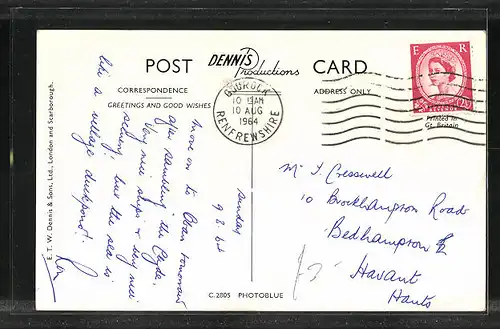 POST DENNIS Productions CARD
CORRESPONDENCE
GREETINGS AND GOOD WISHES
ADDRESS ONLY
E R
2½D
Printed in
Gt. Britain
GOUROCK
10 15 AM
10 AUG
1964
RENFREWSHIRE
Sunday
9.8.64
Now on to Oban tomorrow
after sampling the Clyde.
Very nice ships & very nice
scenery! but the sea is
like a village duckpond!
E. T. W. Dennis & Sons, Ltd., London and Scarborough.
C.2805 PHOTOBLUE
Mr J. Cresswell
10 Brockhampton Road
Bedhampton
Havant
Hants